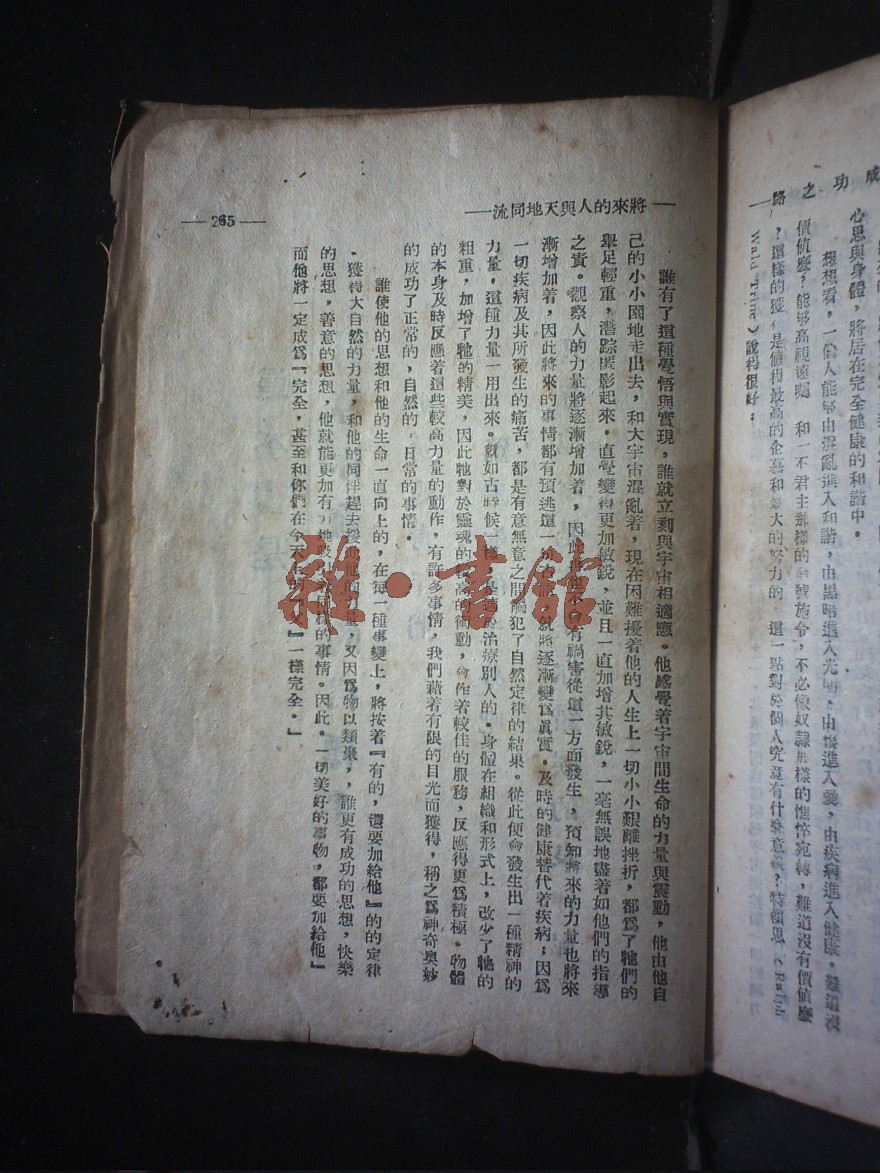 成功之路
心思與身體，將居在完全健康的和諧中。
想想看，一個人能够由混亂進入和諧，由黑暗進入光明，由恨進入愛，由疾病進入健康，難道沒有
價值麽？能够高視遠矚，和一不君主那樣的發號施令，不必像奴隸那樣的憔悴宛轉，難道沒有價值麽
？這樣的獲，是值得最高的企慕和最大的努力的，這一點對於個人究竟有什麽意義？特賴思（Ralph
Waldo Trine）說得很好：
—將來的人與天地同流—
誰有了這種覺悟與實現，誰就立刻與宇宙相適應。他感覺着宇宙間生命的力量與震動，他由他自
己的小小園地走出去，和大宇宙混亂着，現在困難擾着他的人生上一切小小艱難挫折，都爲了牠們的
舉足輕重，潛踪匿影起來。直覺變得更加敏銳，並且一直加增其敏銳，一毫無誤地盡着如他們的指導
之責。觀察人的力量將逐漸增加着，因此 有禍害從這一方面發生，預知將來的力量也將來
漸增加着，因此將來的事情都有預逃這一 就將逐漸變爲眞實。及時的健康替代着疾病；因爲
一切疾病及其所發生的痛苦，都是有意無意之間觸犯了自然定律的結果。從此便會發生出一種精神的
力量，這種力量一用出來。就如古時候一樣， 是適於治療別人的。身體在組織和形式上，改少了牠的
粗重，加增了牠的精美，因此牠對於靈魂的較高的衝動，會作着較佳的服務，反應得更爲積極。物體
的本身及時反應着這些較高力量的動作，有許多事情，我們藉着有限的目光而獲得，稱之爲神奇奧妙
的成功了正常的，自然的，日常的事情。
誰使他的思想和他的生命一直向上的，在每一種事變上，將按着『有的，還要加給他』的的定律
，獲得大自然的力量，和他的同伴趕去 他的力量，又因爲物以類聚，，誰更有成功的思想，快樂
的思想，善意的思想，他就能更加有力地 同樣的事情。因此。一切美好的事物，都要加給他』
而他將一定成爲『完全，甚至和你們在今天 的 』一樣完全。』
— 265 —
雜·書館